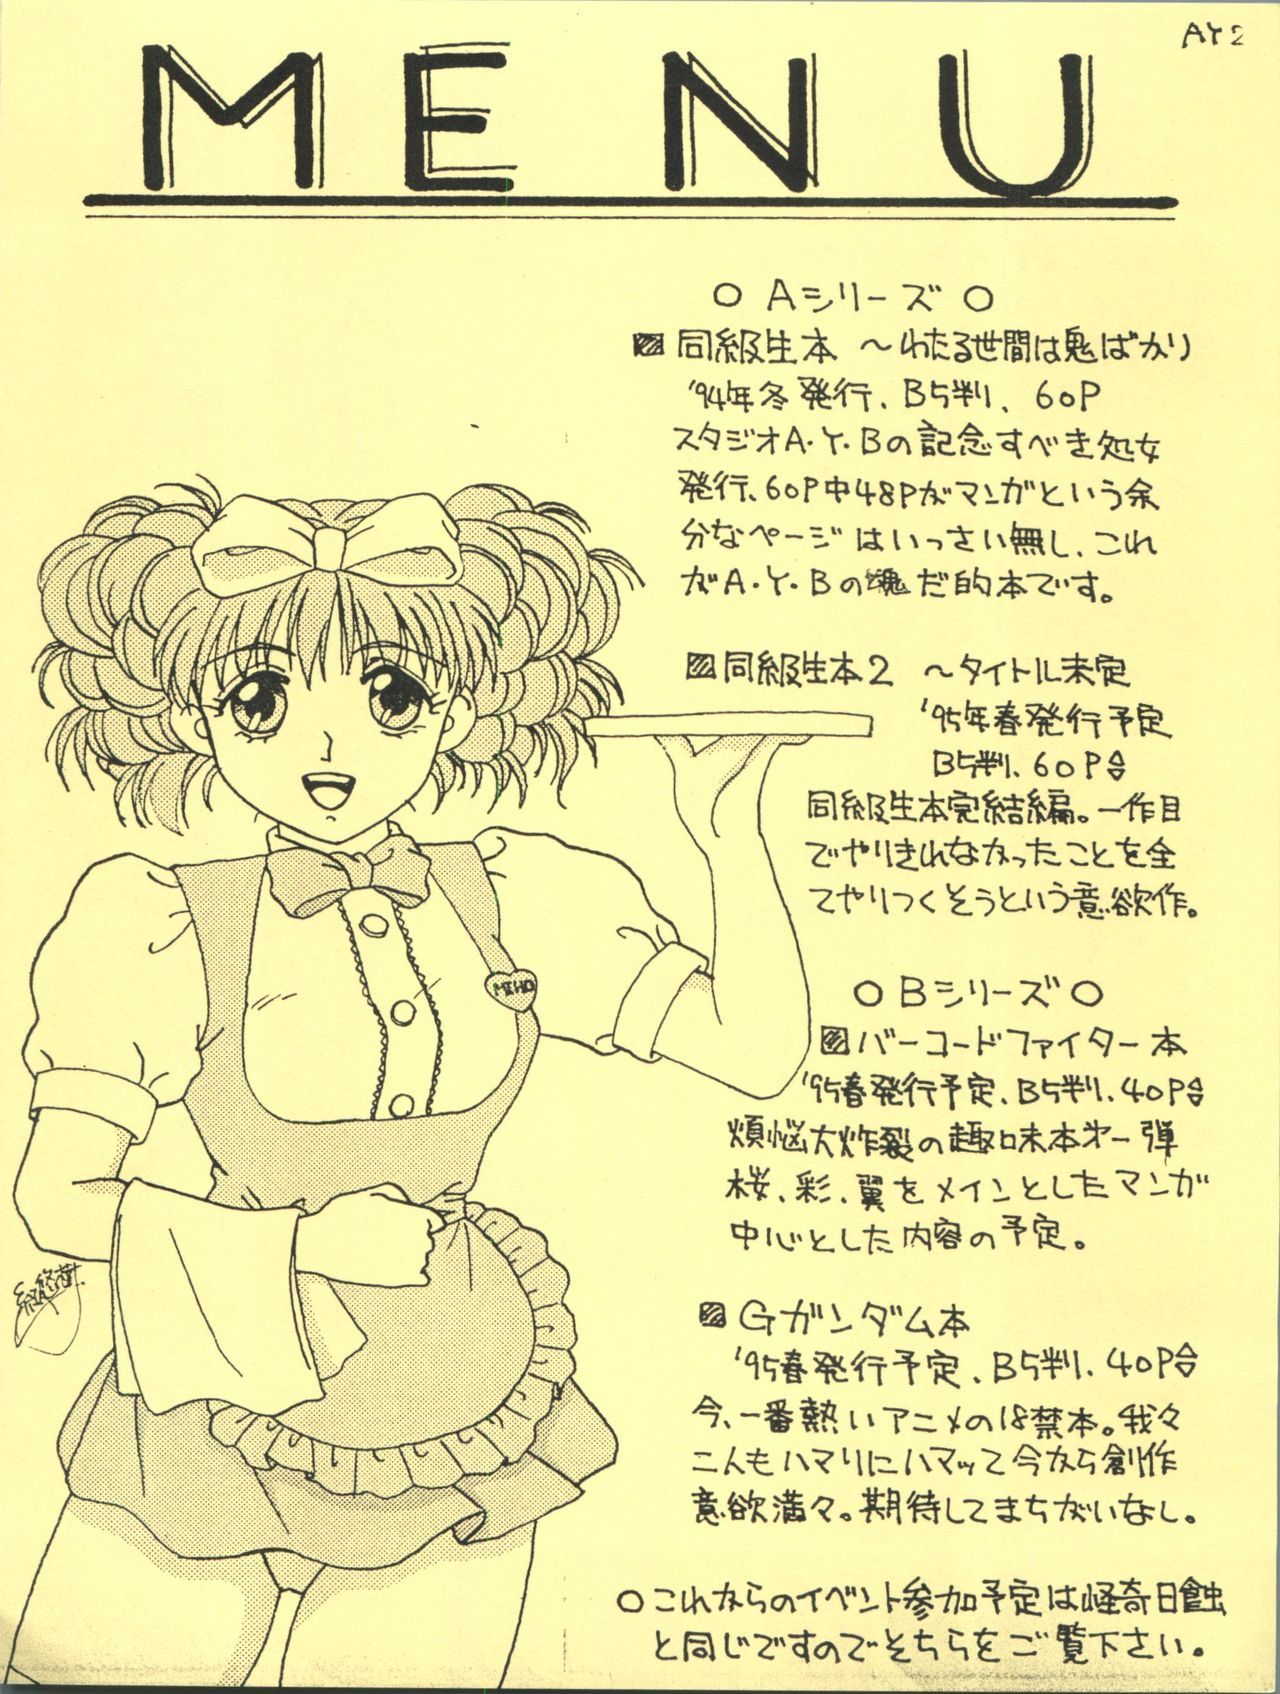 AY2
MENU
○ Aシリーズ ○
▨ 同級生本 〜わたる世間は鬼ばかり
'94年冬発行、B5判、60P
スタジオA・Y・Bの記念すべき処女
発行、60P中48Pがマンガという余
分なページはいっさい無し、これ
がA・Y・Bの魂だ的本です。
▨同級生本2 〜タイトル未定
'95年春発行予定
B5判、60P合
同級生本完結編。一作目
でやりきれなかったことを全
てやりつくそうという意欲作。
○Bシリーズ○
▨バーコードファイター本
'95春発行予定、B5判、40P合
煩悩大炸裂の趣味本第一弾
桜、彩、翼をメインとしたマンガ
中心とした内容の予定。
▨ Gガンダム本
'95春発行予定、B5判、40P合
今、一番熱いアニメの18禁本。我々
二人もハマりにハマッて今から創作
意欲満々。期待してまちがいなし。
○これからのイベント参加予定は怪奇日蝕
と同じですのでそちらをご覧下さい。
MIHO